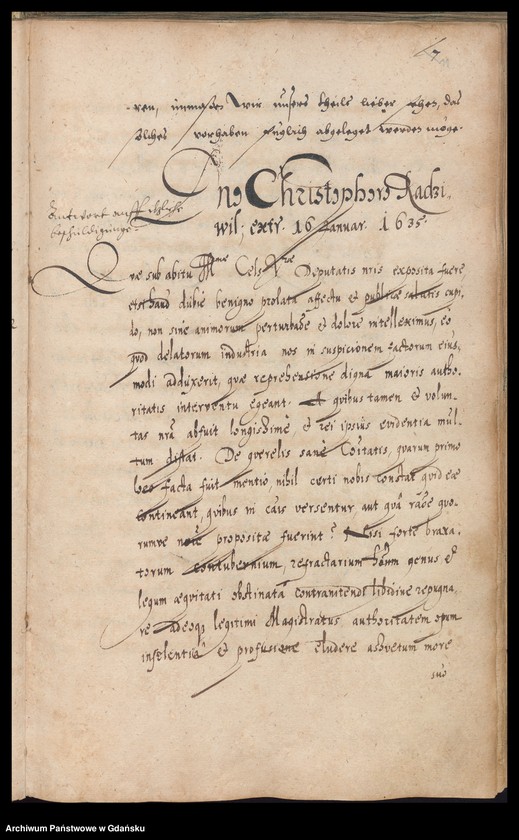 -ren, inmaßen wir unsers theils lieber sehen, das
solches vorhaben füglich abgeleget werden möge.
Dno Christophoro Radzi,
wil, extr. 16 Januar. 1635.
Antwort auff etzliche
beschuldigunge.
Quæ sub abitu Illmæ Cels. Vræ Deputatis nris exposita fuere,
etsi haud dubiè benigno prolata affectu et publicæ salutis cupi,
do, non sine animorum perturbaoe et dolore intelleximus, eò
quod delatorum industria nos in suspicionem factorum eius,
modi adduxerit, quæ reprehensione digna maioris autho,
ritatis interventu egeant. A quibus tamen et volun,
tas nra abfuit longissimè, et rei ipsius evidentia mul,
tum distat. De querelis sanè Coitatis, quarum primo
loco facta fuit mentio, nihil certi nobis constat quid eæ
contineant, quibus in cais versentur, aut quâ raoe quo,
rumve noie propositæ fuerint? Nisi forte braxa,
torum contubernium, refractarium hoim genus et
legum æquitati obstinatâ contranitendi libidine repugna,
re adeoq; legitimi Magistratus authoritatem opum
insolentiâ et profusione eludere assvetum more
suo
Archiwum Państwowe w Gdańsku